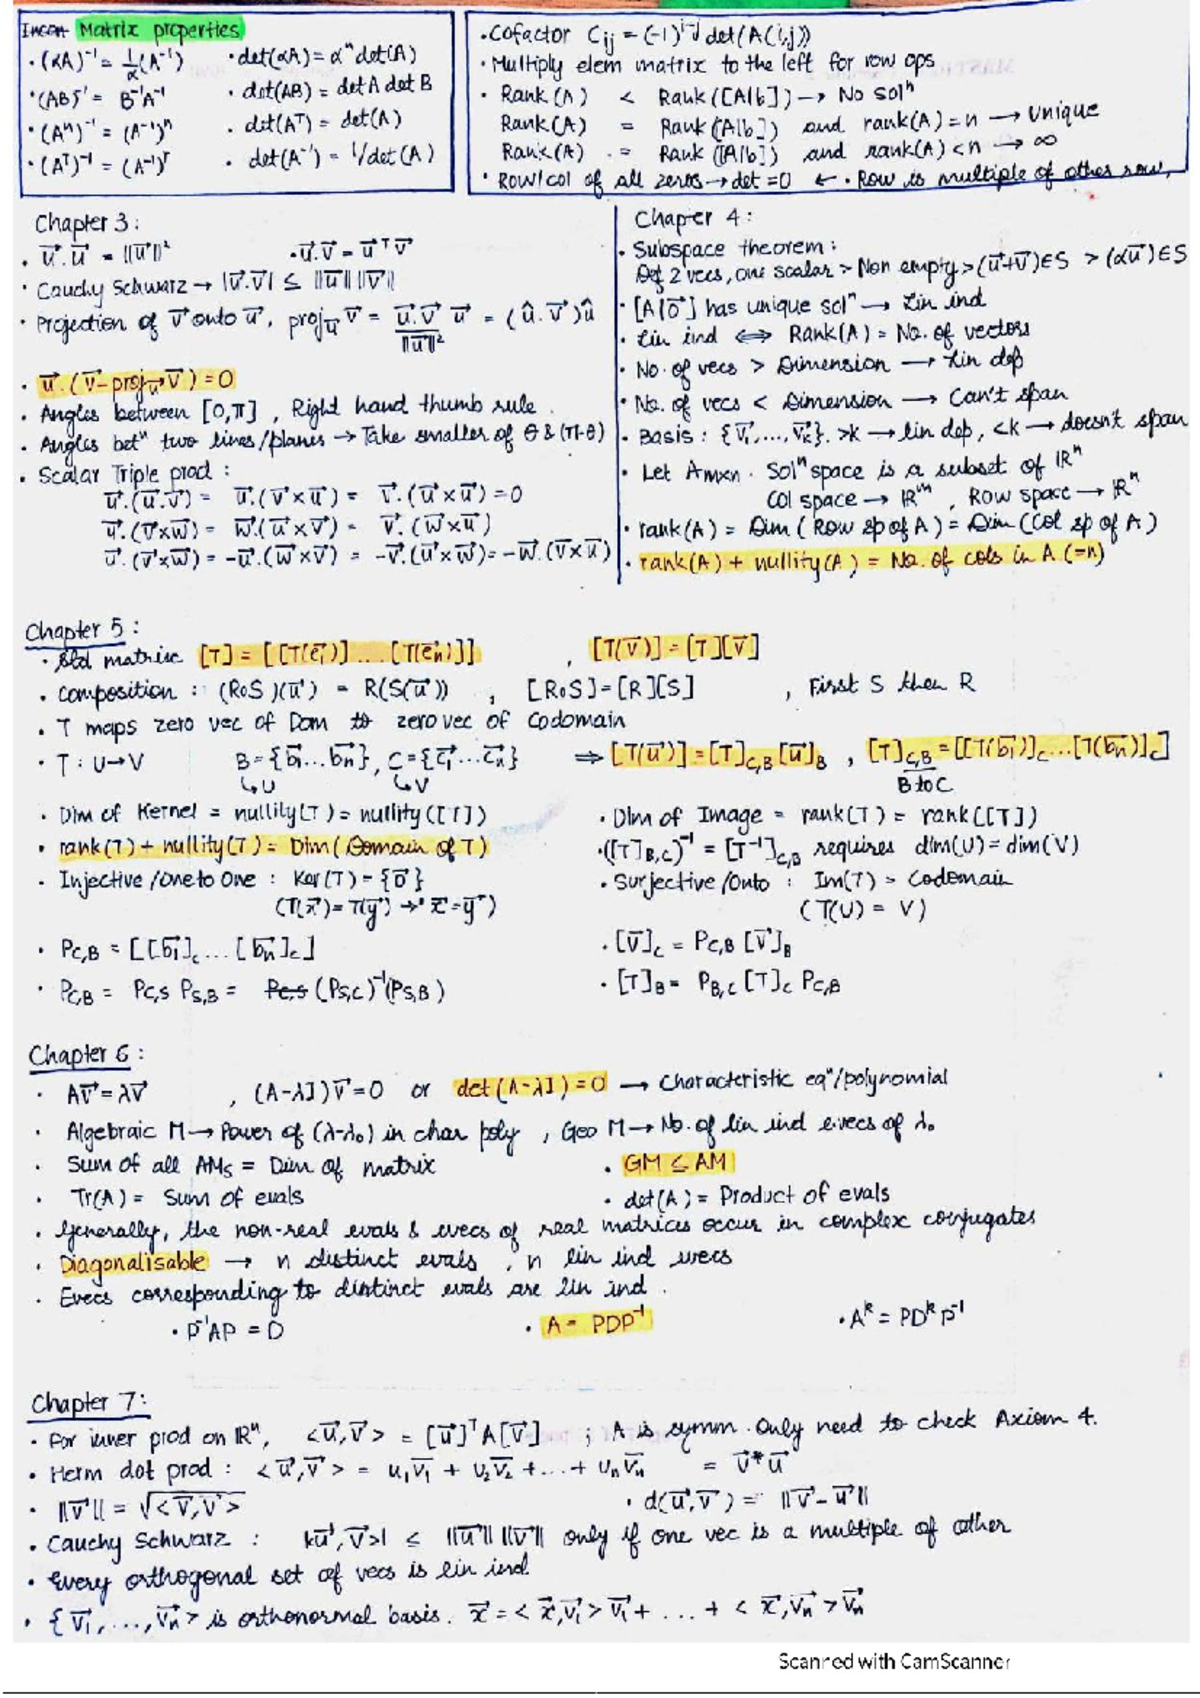 Matrix properties
· (αA)⁻¹ = 1/α (A⁻¹) · det(αA) = αⁿ det(A)
· (AB)⁻¹ = B⁻¹A⁻¹ · det(AB) = det A det B
· (Aⁿ)⁻¹ = (A⁻¹)ⁿ · det(Aᵀ) = det(A)
· (Aᵀ)⁻¹ = (A⁻¹)ᵀ · det(A⁻¹) = 1/det(A)
· Cofactor Cij = (-1)^(i-j) det(A(i,j))
· Multiply elem matrix to the left for row ops
· Rank(A) < Rank([A|b]) → No solⁿ
Rank(A) = Rank([A|b]) and rank(A)=n → Unique
Rank(A) = Rank([A|b]) and rank(A)<n → ∞
· Row/col of all zeros → det=0 ← · Row is multiple of other row,
Chapter 3:
· u⃗.u⃗ = ||u⃗||² · u⃗.v⃗ = u⃗ᵀv⃗
· Cauchy Schwarz → |u⃗.v⃗| ≤ ||u⃗|| ||v⃗||
· Projection of v⃗ onto u⃗, proj_u⃗ v⃗ = (u⃗.v⃗ / ||u⃗||²) u⃗ = (û.v⃗)û
· u⃗.(v⃗-proj_u⃗ v⃗) = 0
· Angles between [0,π], Right hand thumb rule.
· Angles betⁿ two lines/planes → Take smaller of θ & (π-θ)
· Scalar Triple prod :
u⃗.(u⃗.v⃗) = u⃗.(v⃗×u⃗) = v⃗.(u⃗×u⃗) = 0
u⃗.(v⃗×w⃗) = w⃗.(u⃗×v⃗) = v⃗.(w⃗×u⃗)
u⃗.(v⃗×w⃗) = -u⃗.(w⃗×v⃗) = -v⃗.(u⃗×w⃗) = -w⃗.(v⃗×u⃗)
Chaper 4:
· Subspace theorem :
Def 2 vecs, one scalar > Non empty > (u⃗+v⃗)∈S > (αu⃗)∈S
· [A|0⃗] has unique solⁿ → Lin ind
· Lin ind ⟺ Rank(A) = No. of vectors
· No. of vecs > Dimension → Lin dep
· No. of vecs < Dimension → Can't span
· Basis : {v⃗₁,...,v⃗k}. >k → lin dep, <k → doesn't span
· Let Amxn. Solⁿ space is a subset of ℝⁿ
Col space → ℝᵐ, Row space → ℝⁿ
· rank(A) = Dim (Row sp of A) = Dim (Col sp of A)
· rank(A) + nullity(A) = No. of cols in A (=n)
Chapter 5 :
· Std matrix [T] = [[T(e⃗₁)] .... [T(e⃗n)]] , [T(v⃗)] = [T][v⃗]
· Composition : (RoS)(u⃗) = R(S(u⃗)) , [RoS]=[R][S] , First S then R
· T maps zero vec of Dom to zero vec of Codomain
· T : U→V B = {b⃗₁...b⃗n}, C = {c⃗₁...c⃗n} ⇒ [T(u⃗)] = [T]C,B [u⃗]B , [T]C,B = [[T(b⃗₁)]C ... [T(b⃗n)]C]
↳U ↳V B to C
· Dim of Kernel = nullity(T) = nullity([T]) · Dim of Image = rank(T) = rank([T])
· rank(T) + nullity(T) = Dim (Domain of T) · ([T]B,C)⁻¹ = [T⁻¹]C,B requires dim(U) = dim(V)
· Injective /One to One : Ker(T) = {0⃗} · Surjective /Onto : Im(T) = Codomain
(T(x⃗) = T(y⃗) → x⃗=y⃗) (T(U) = V)
· PC,B = [[b⃗₁]c ... [b⃗n]c] · [v⃗]C = PC,B [v⃗]B
· PC,B = PC,S PS,B = PC,S (PS,C)⁻¹(PS,B) · [T]B = PB,C [T]C PC,B
Chapter 6 :
· Av⃗ = λv⃗ , (A-λI)v⃗=0 or det(A-λI)=0 → Characteristic eqⁿ/polynomial
· Algebraic M → Power of (λ-λ₀) in char poly , Geo M → No. of lin ind evecs of λ₀
· Sum of all AMs = Dim of matrix · GM ≤ AM
· Tr(A) = Sum of evals · det(A) = Product of evals
· Generally, the non-real evals & evecs of real matrices occur in complex conjugates
· Diagonalisable → n distinct evals , n lin ind evecs
· Evecs corresponding to distinct evals are lin ind.
· P⁻¹AP = D · A = PDP⁻¹ · Aᵏ = PDᵏP⁻¹
Chapter 7:
· For inner prod on ℝⁿ, <u⃗,v⃗> = [u⃗]ᵀA[v⃗] ; A is symm. Only need to check Axiom 4.
· Herm dot prod : <u⃗,v⃗> = u₁v̅₁ + u₂v̅₂ +...+ unv̅n = v⃗*u⃗
· ||v⃗|| = √<v⃗,v⃗> · d(u⃗,v⃗) = ||v⃗-u⃗||
· Cauchy Schwarz : |<u⃗,v⃗>| ≤ ||u⃗|| ||v⃗|| only if one vec is a multiple of other
· Every orthogonal set of vecs is lin ind.
· {v⃗₁,...,v⃗n> is orthonormal basis. x⃗ = <x⃗,v⃗₁>v⃗₁ + ... + <x⃗,v⃗n>v⃗n
Scanned with CamScanner